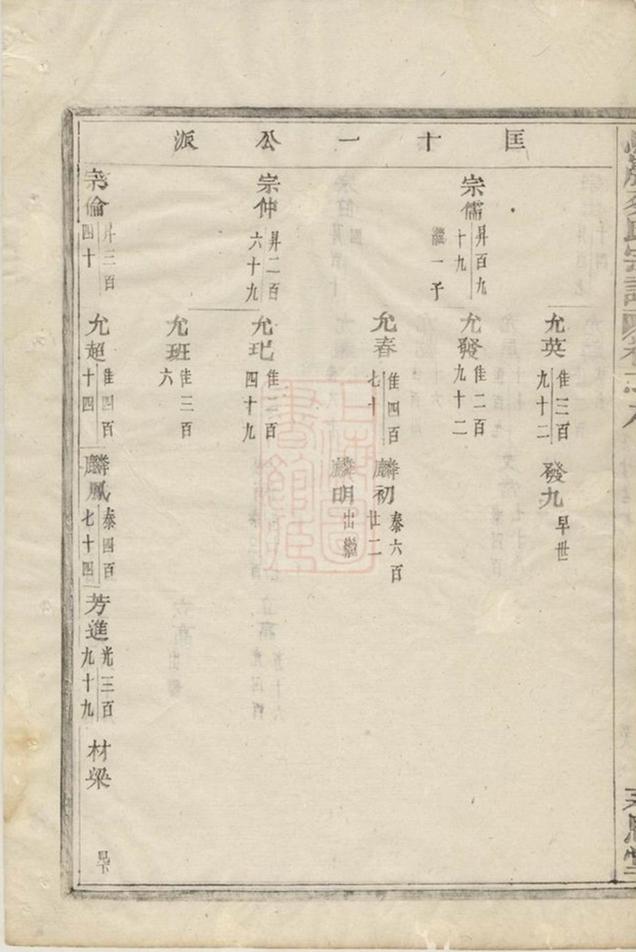 匡十一公派
允英 隹三百九十二
發九 早世
宗儒 昇百九十九 繼一子
允發 隹二百九十二
允春 隹四百七十
麟初 泰六百廿二
麟明 出繼
宗仲 昇二百六十九
允玘 隹三百四十九
允班 隹三百六
宗倫 昇三百四十
允超 隹四百十四
麟鳳 泰四百七十四
芳進 光三百九十九
材梁
上海圖書館藏